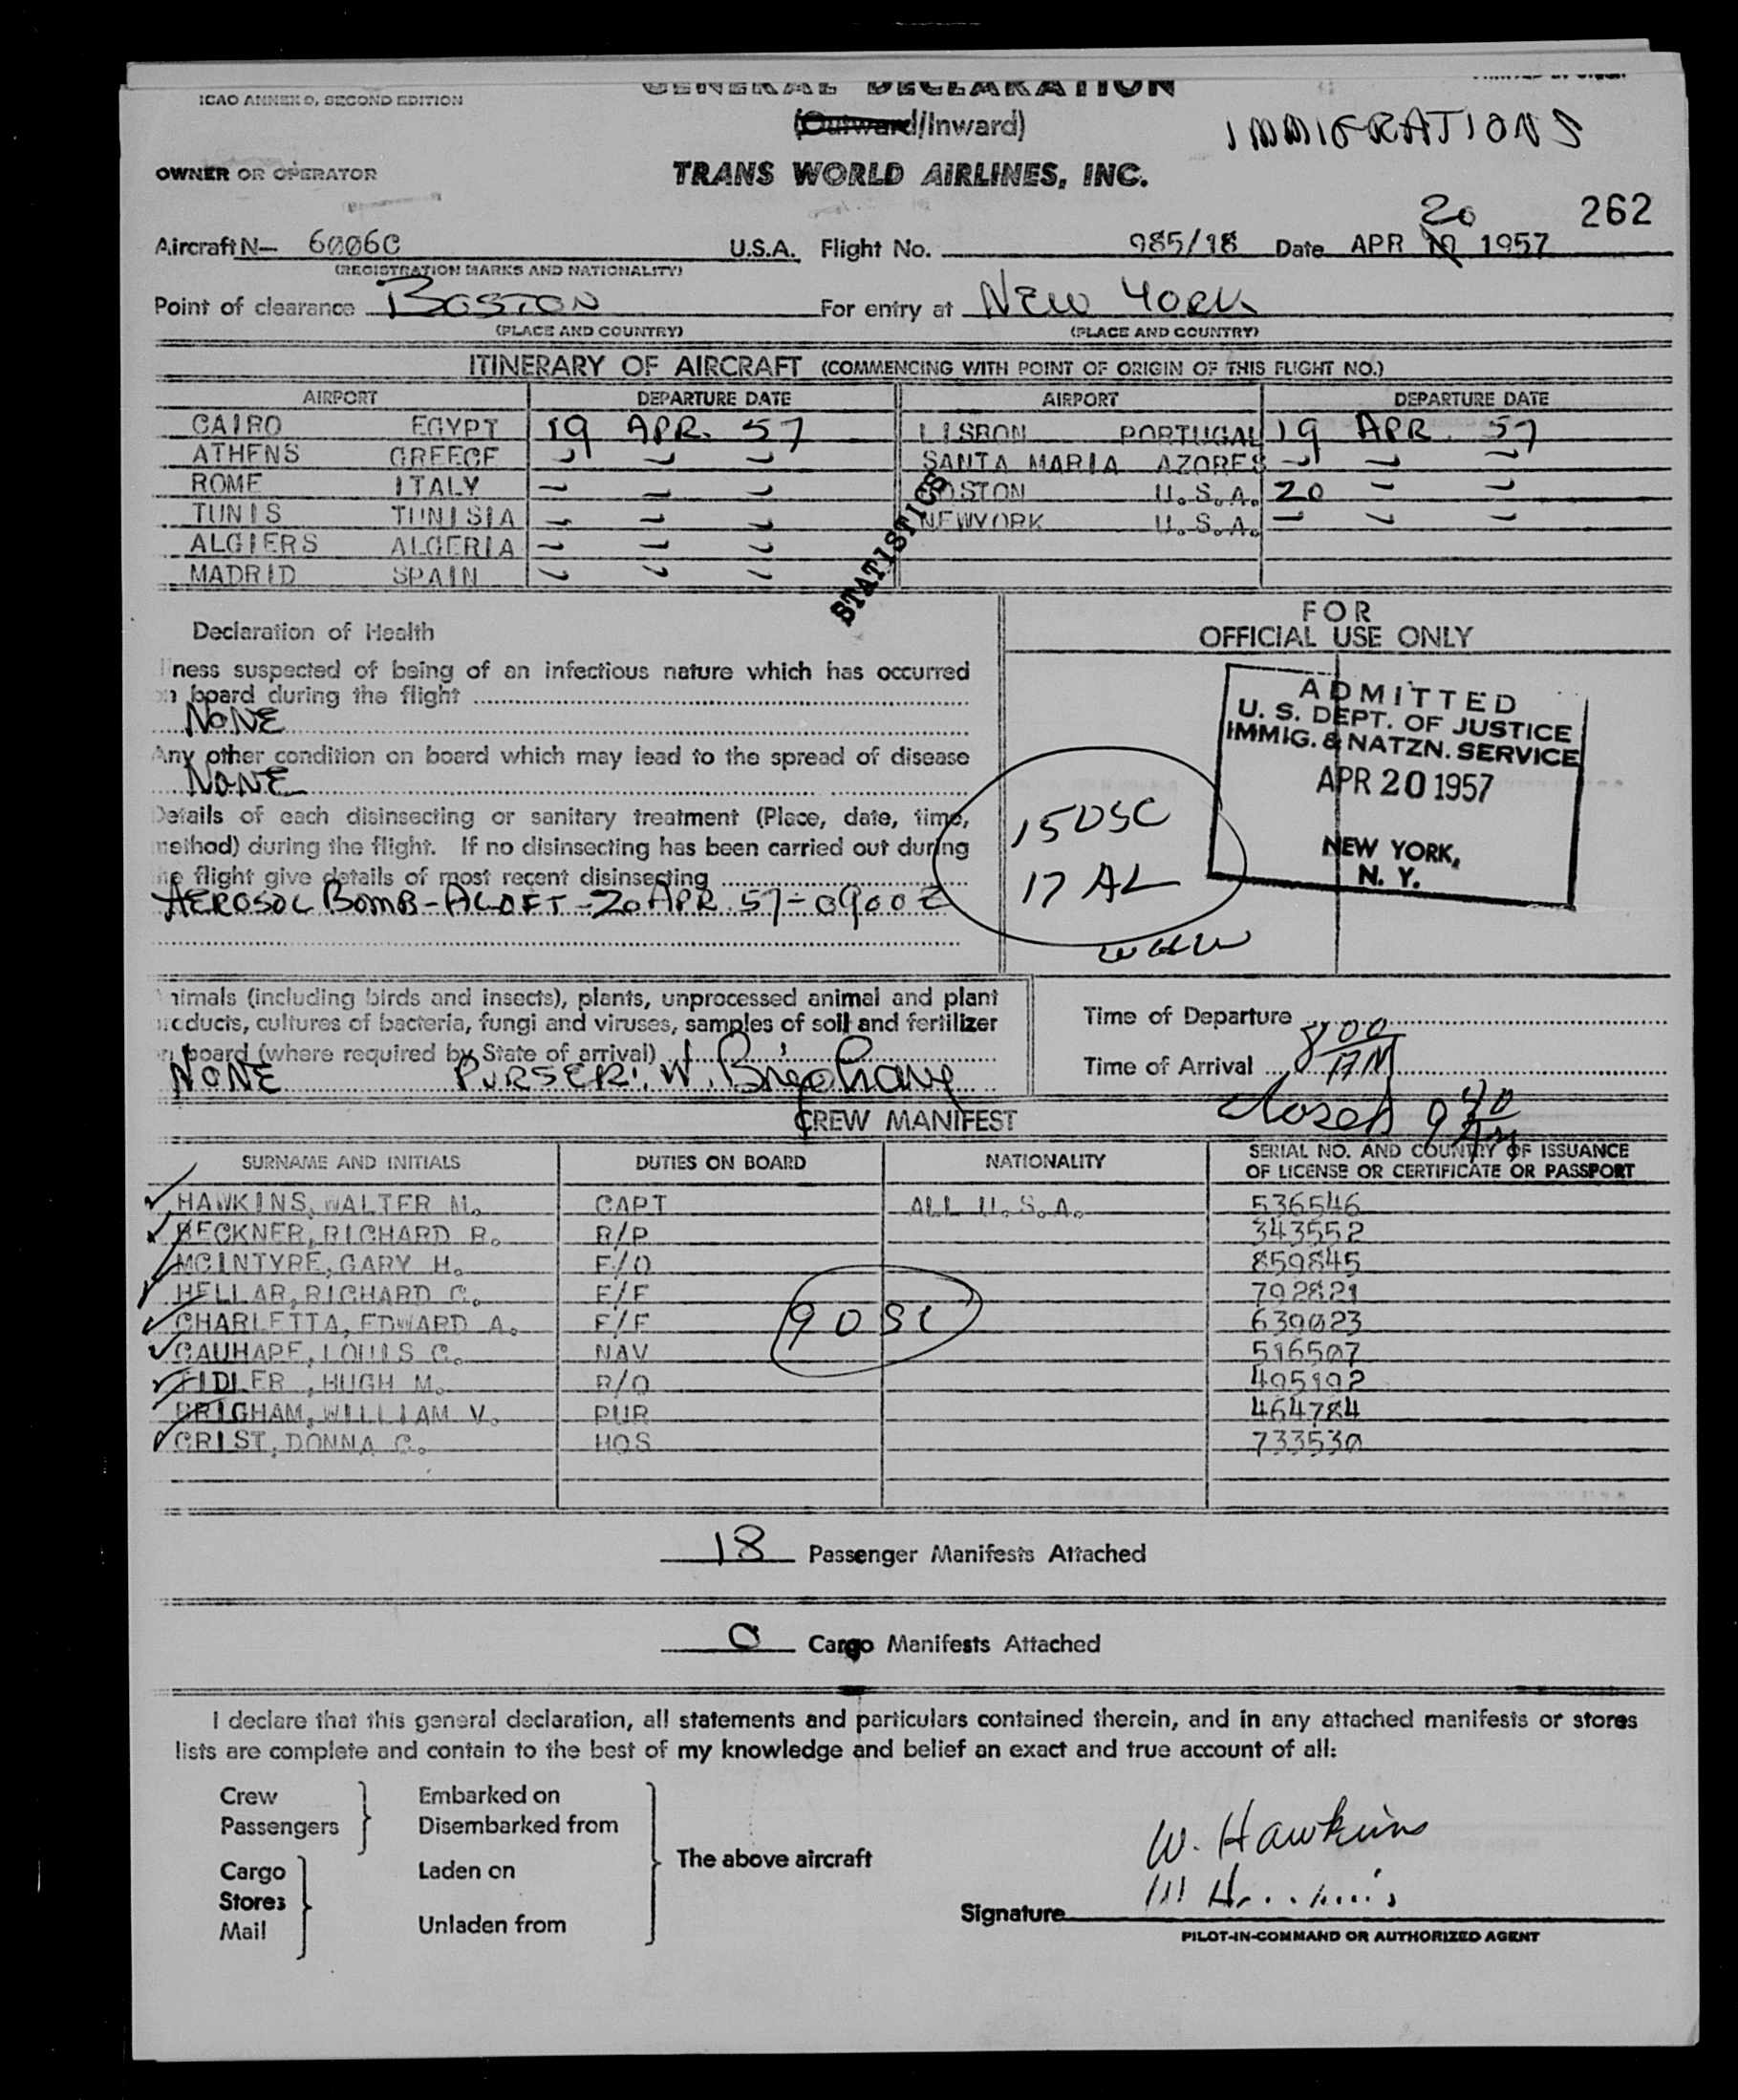 ICAO ANNEX 9, SECOND EDITION
GENERAL DECLARATION
(Outward/Inward)
IMMIGRATIONS
OWNER OR OPERATOR
TRANS WORLD AIRLINES, INC.
20 262
Aircraft N- 6006C U.S.A. Flight No. 985/18 Date APR 19 1957
(REGISTRATION MARKS AND NATIONALITY)
Point of clearance BOSTON For entry at NEW YORK
(PLACE AND COUNTRY) (PLACE AND COUNTRY)
ITINERARY OF AIRCRAFT (COMMENCING WITH POINT OF ORIGIN OF THIS FLIGHT NO.)
AIRPORT DEPARTURE DATE AIRPORT DEPARTURE DATE
CAIRO EGYPT 19 APR. 57 LISBON PORTUGAL 19 APR. 57
ATHENS GREECE SANTA MARIA AZORES
ROME ITALY BOSTON U.S.A. 20
TUNIS TUNISIA NEWYORK U.S.A.
ALGIERS ALGERIA
MADRID SPAIN
STATISTICS
Declaration of Health
FOR
OFFICIAL USE ONLY
lness suspected of being of an infectious nature which has occurred
on board during the flight
NONE
Any other condition on board which may lead to the spread of disease
NONE
Details of each disinsecting or sanitary treatment (Place, date, time,
method) during the flight. If no disinsecting has been carried out during
he flight give details of most recent disinsecting
AEROSOL BOMB-ALOFT-20 APR 57-0900Z
ADMITTED
U. S. DEPT. OF JUSTICE
IMMIG. & NATZN. SERVICE
APR 20 1957
NEW YORK,
N. Y.
15 USC
17 AL
nimals (including birds and insects), plants, unprocessed animal and plant
roducts, cultures of bacteria, fungi and viruses, samples of soil and fertilizer
on board (where required by State of arrival)
NONE PURSER: W.
Time of Departure
Time of Arrival 8 00 AM
Closed 9 40 AM
CREW MANIFEST
SURNAME AND INITIALS DUTIES ON BOARD NATIONALITY SERIAL NO. AND COUNTRY OF ISSUANCE
OF LICENSE OR CERTIFICATE OR PASSPORT
HAWKINS, WALTER M. CAPT ALL U.S.A. 536546
BECKNER, RICHARD R. R/P 343552
MCINTYRE, GARY H. F/O 859845
HELLAR, RICHARD C. F/E 792821
CHARLETTA, EDWARD A. F/E 639023
CAUHAPE, LOUIS C. NAV 516507
FIDLER, HUGH M. R/O 495192
BRIGHAM, WILLIAM V. PUR 464784
CRIST, DONNA C. HOS 733530
9 USC
18 Passenger Manifests Attached
0 Cargo Manifests Attached
I declare that this general declaration, all statements and particulars contained therein, and in any attached manifests or stores
lists are complete and contain to the best of my knowledge and belief an exact and true account of all:
Crew Embarked on
Passengers Disembarked from
The above aircraft
Cargo Laden on
Stores
Mail Unladen from
W. Hawkins
Signature
PILOT-IN-COMMAND OR AUTHORIZED AGENT